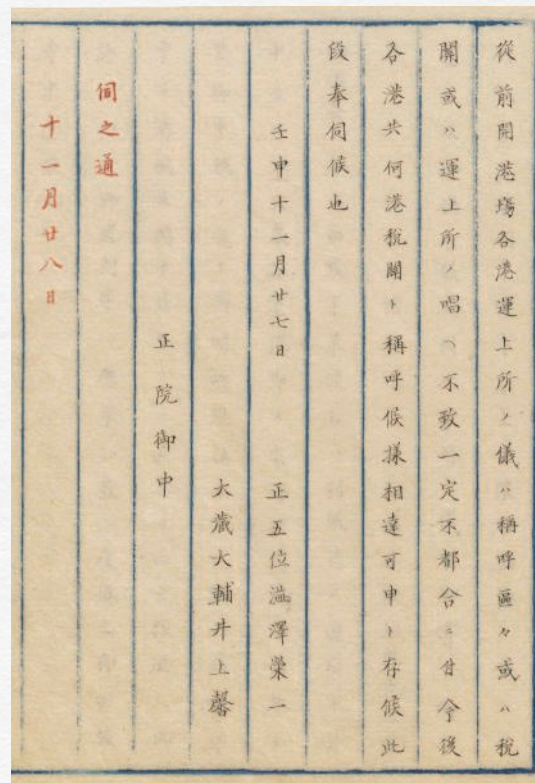 從前開港塲各港運上所ノ儀ハ稱呼區々或ハ稅
關或ハ運上所ノ唱ヘ不致一定不都合ニ付今後
各港共何港稅關ト稱呼候樣相達可申ト存候此
段奉伺候也
壬申十一月廿七日 正五位澁澤榮一
大藏大輔井上馨
正院御中
伺之通
十一月廿八日